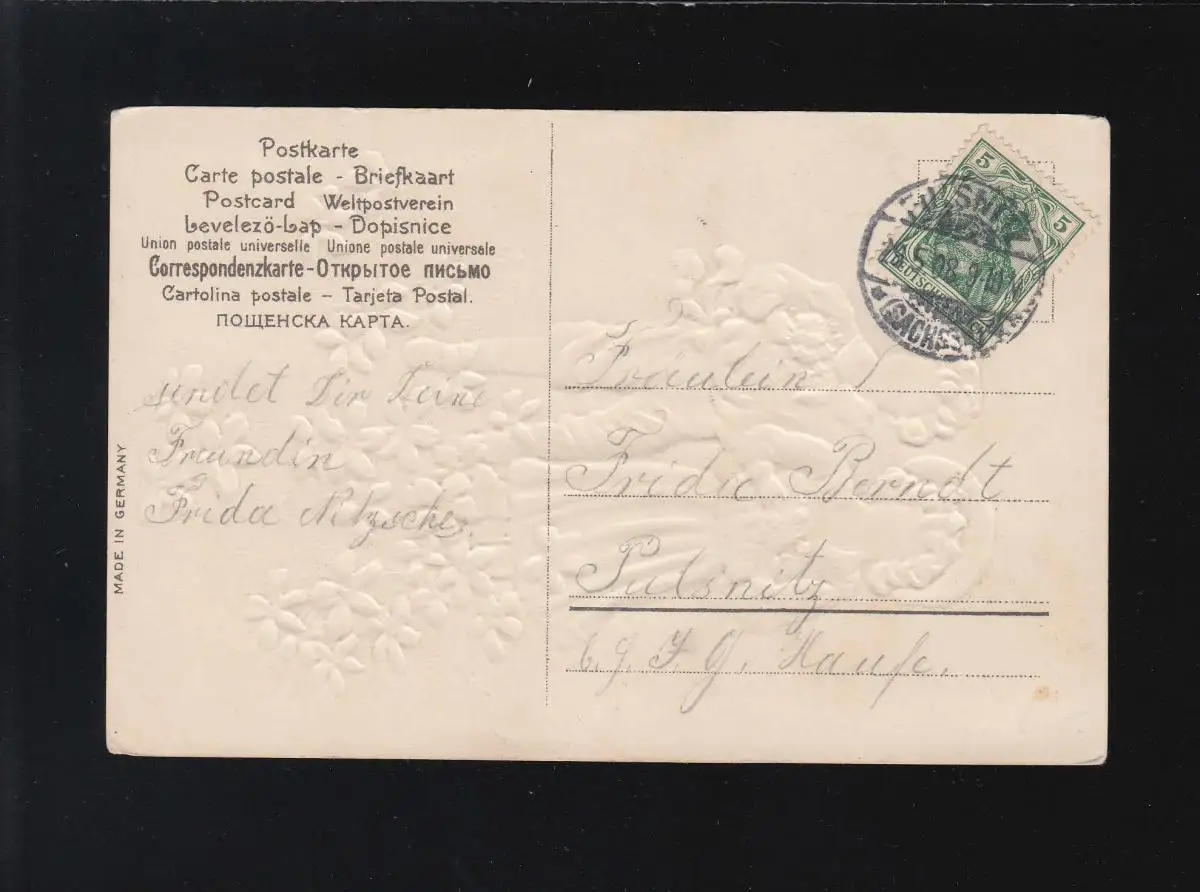 Postkarte
Carte postale - Briefkaart
Postcard Weltpostverein
Levelezö-Lap - Dopisnice
Union postale universelle Unione postale universale
Correspondenzkarte - Открытое письмо
Cartolina postale - Tarjeta Postal.
ПОЩЕНСКА КАРТА.
MADE IN GERMANY
sendet Dir Deine
Freundin
Frida Nitzsche.
5 5
DEUTSCHES REICH
PULSNITZ
5.08. 9-10
(SACHS
Fräulein
Frida Berndt
Pulsnitz
b. J. G. Haufe.